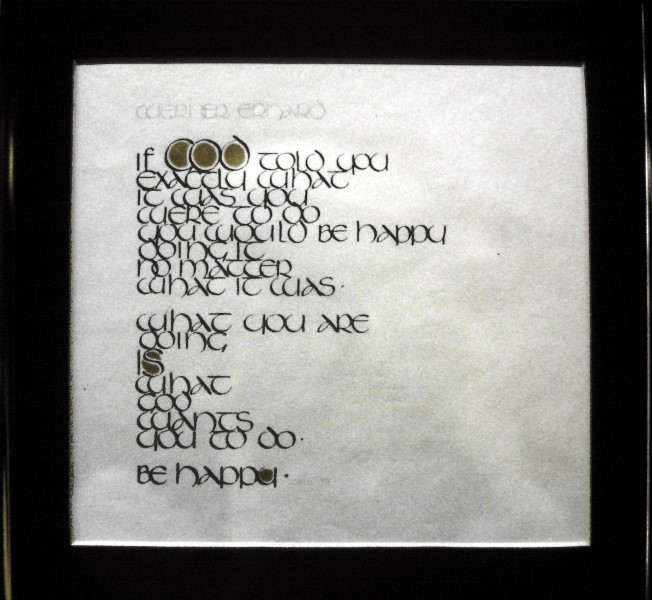 WERNER ERHARD
If GOD TOLD YOU
EXACTLY WHAT
IT WAS YOU
WERE TO DO
YOU WOULD BE HAPPY
DOING IT
NO MATTER
WHAT IT WAS.
WHAT YOU ARE
DOING
IS
WHAT
GOD
WANTS
YOU TO DO.
BE HAPPY.